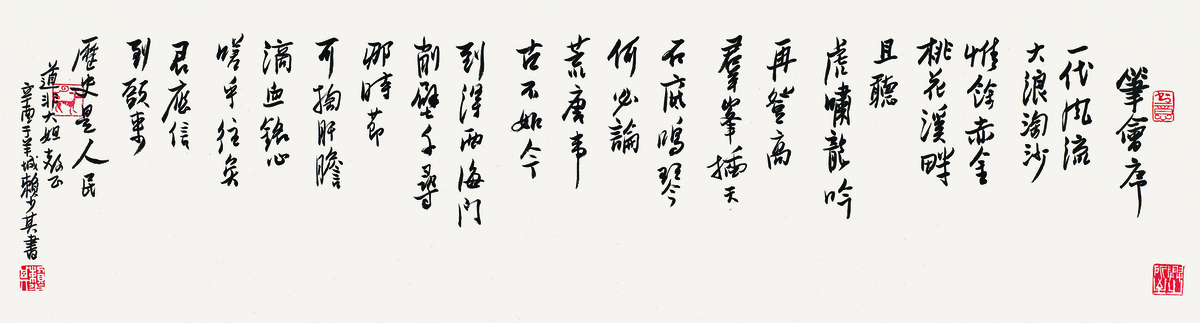 笔會序
一代风流
大浪淘沙
惟餘赤金
桃花溪畔
且聽
虎嘯龍吟
再登高
羣峯插天
石底鳴琴
何必論
荒唐韦
古不如今
到深西海門
削壁千尋
那時節
可掏肝膽
滴血銘心
嗟乎往矣
君應信
到頭来
歷史是人民
道非大姐教正
辛酉于羊城赖少其書